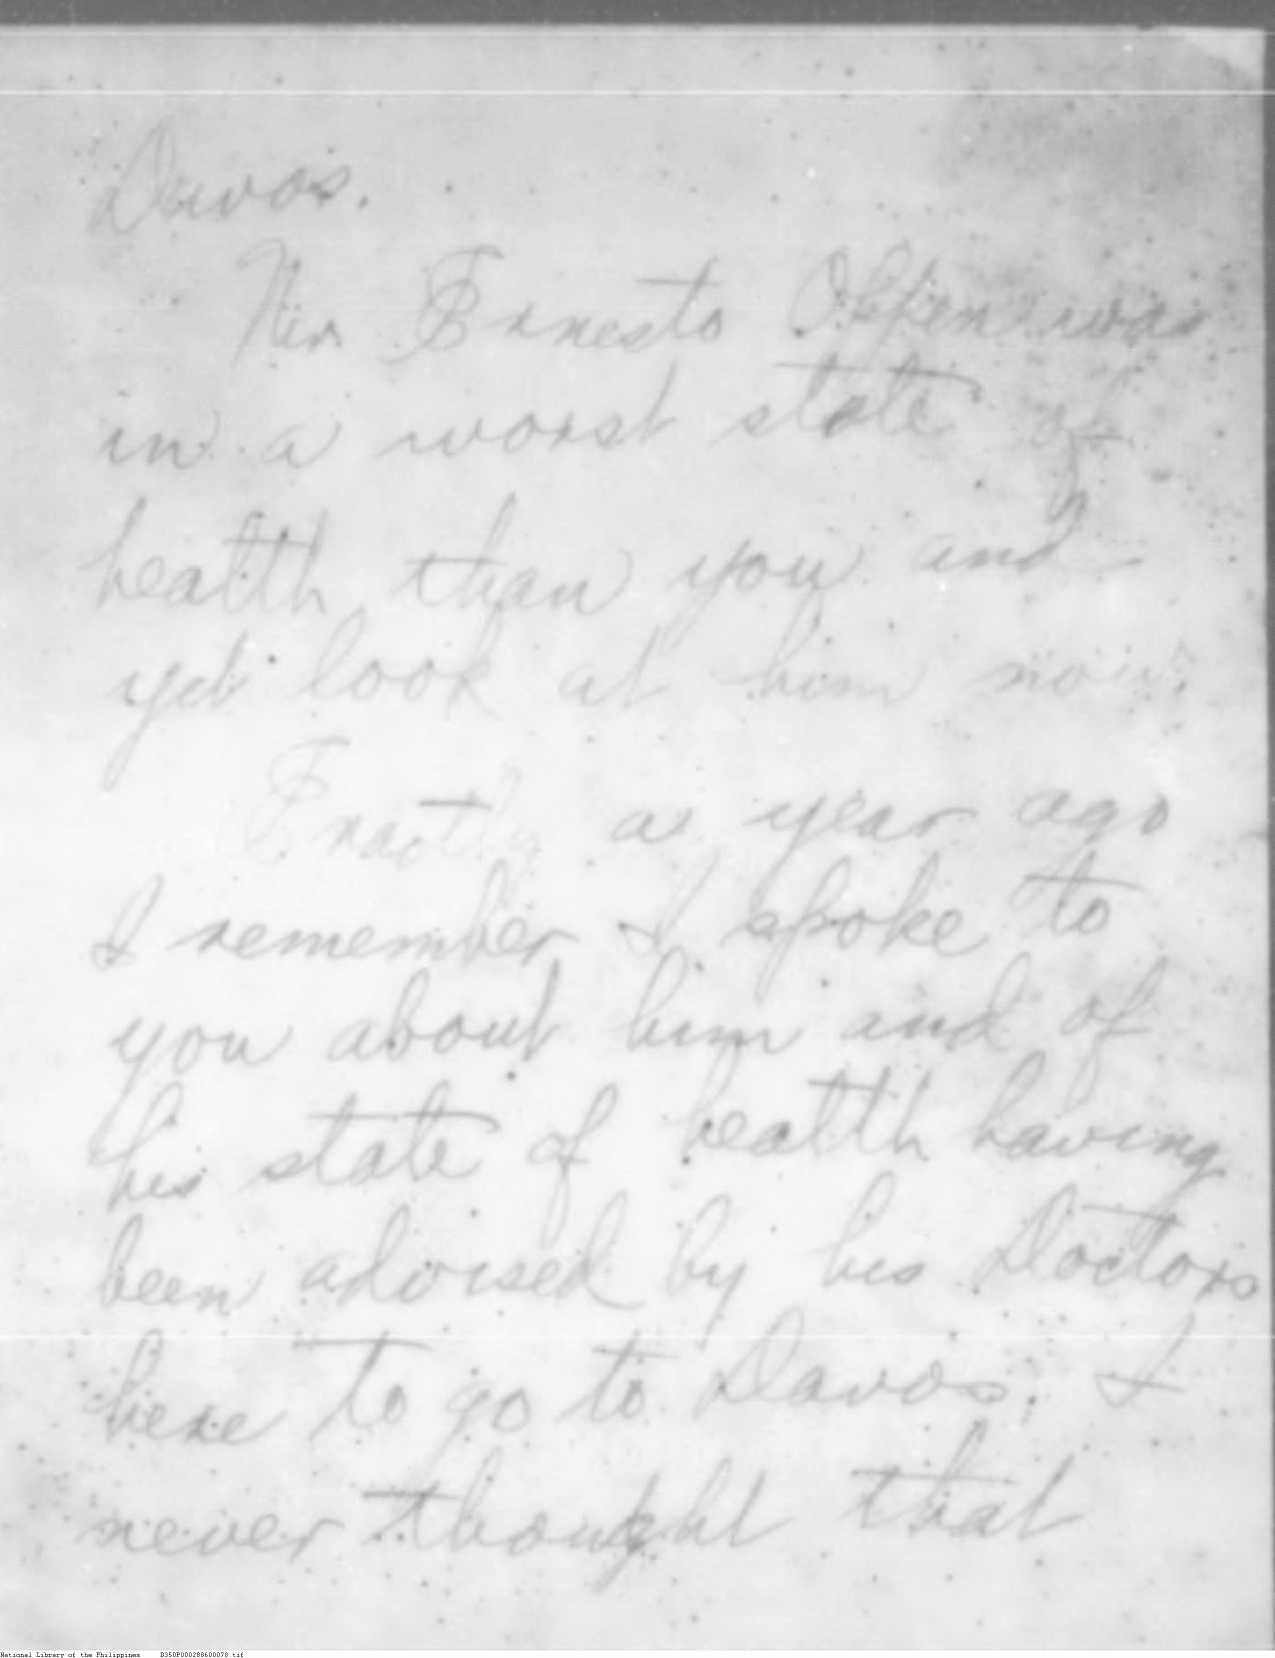 Davos.
Mr. Ernesto Oppen was
in a worst state of
health than you and
yet look at him now.
Exactly a year ago
I remember I spoke to
you about him and of
his state of health having
been advised by his Doctors
here to go to Davos. I
never thought that
National Library of the Philippines D350P000288600078.tif